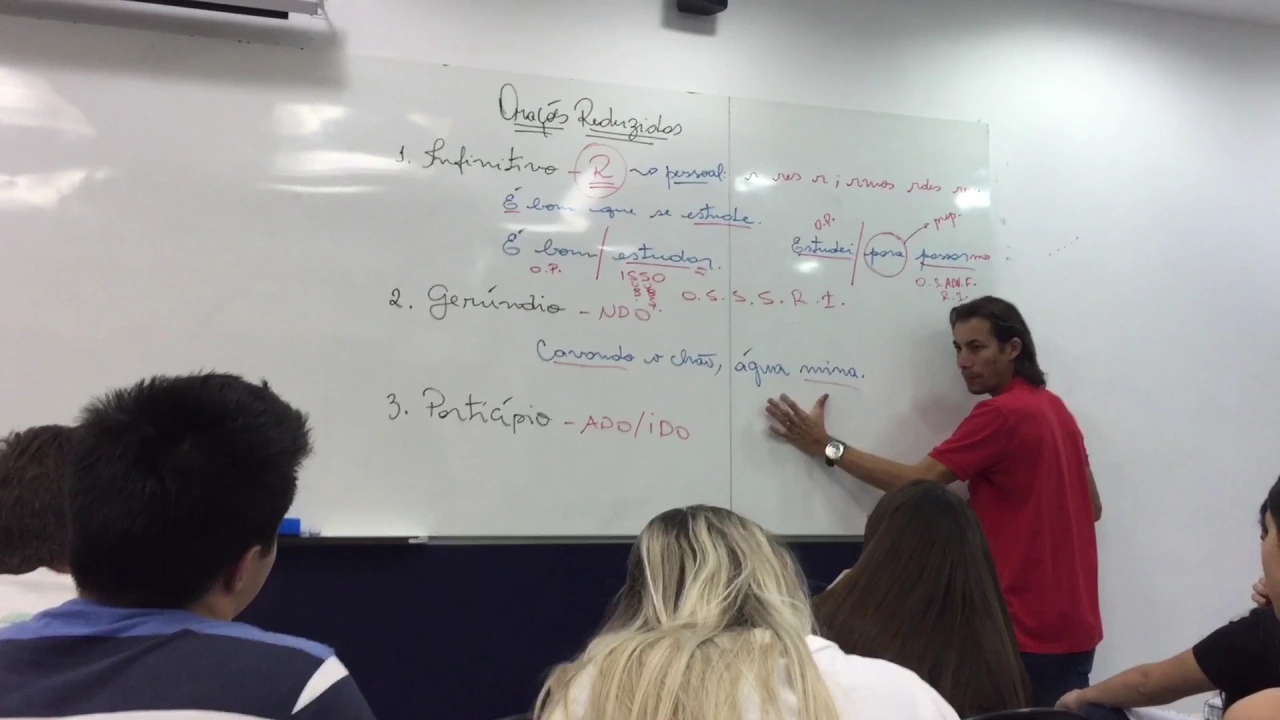 Orações Reduzidas
1. Infinitivo - R ~> pessoal: r res r ; rmos rdes rem
É bom que se estude.
É bom / estudar.
O.P. ISSO
O.S.S.S.R.I.
O.P. prep.
Estudei / para passarmo
O.S.ADV.F.
R.I.
2. Gerúndio - NDO
Cavando o chão, água mina.
3. Particípio - ADO/IDO